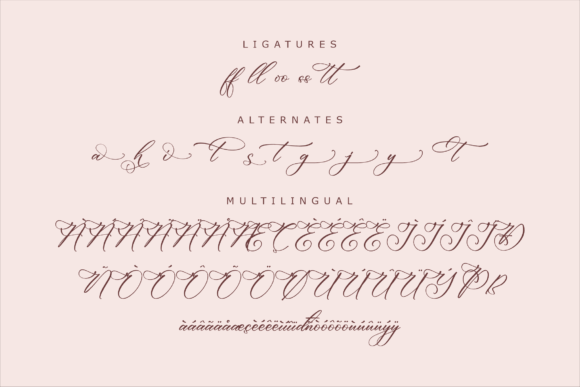 LIGATURES
ff ll oo ss tt
ALTERNATES
a h o t s t g j y t
MULTILINGUAL
ÀÁÂÃÄÅÆÇÈÉÊËÌÍÎÏÐ
ÑÒÓÔÕÖØÙÚÛÜÝÞß
àáâãäåæçèéêëìíîïðñòóôõöùúûüýÿ